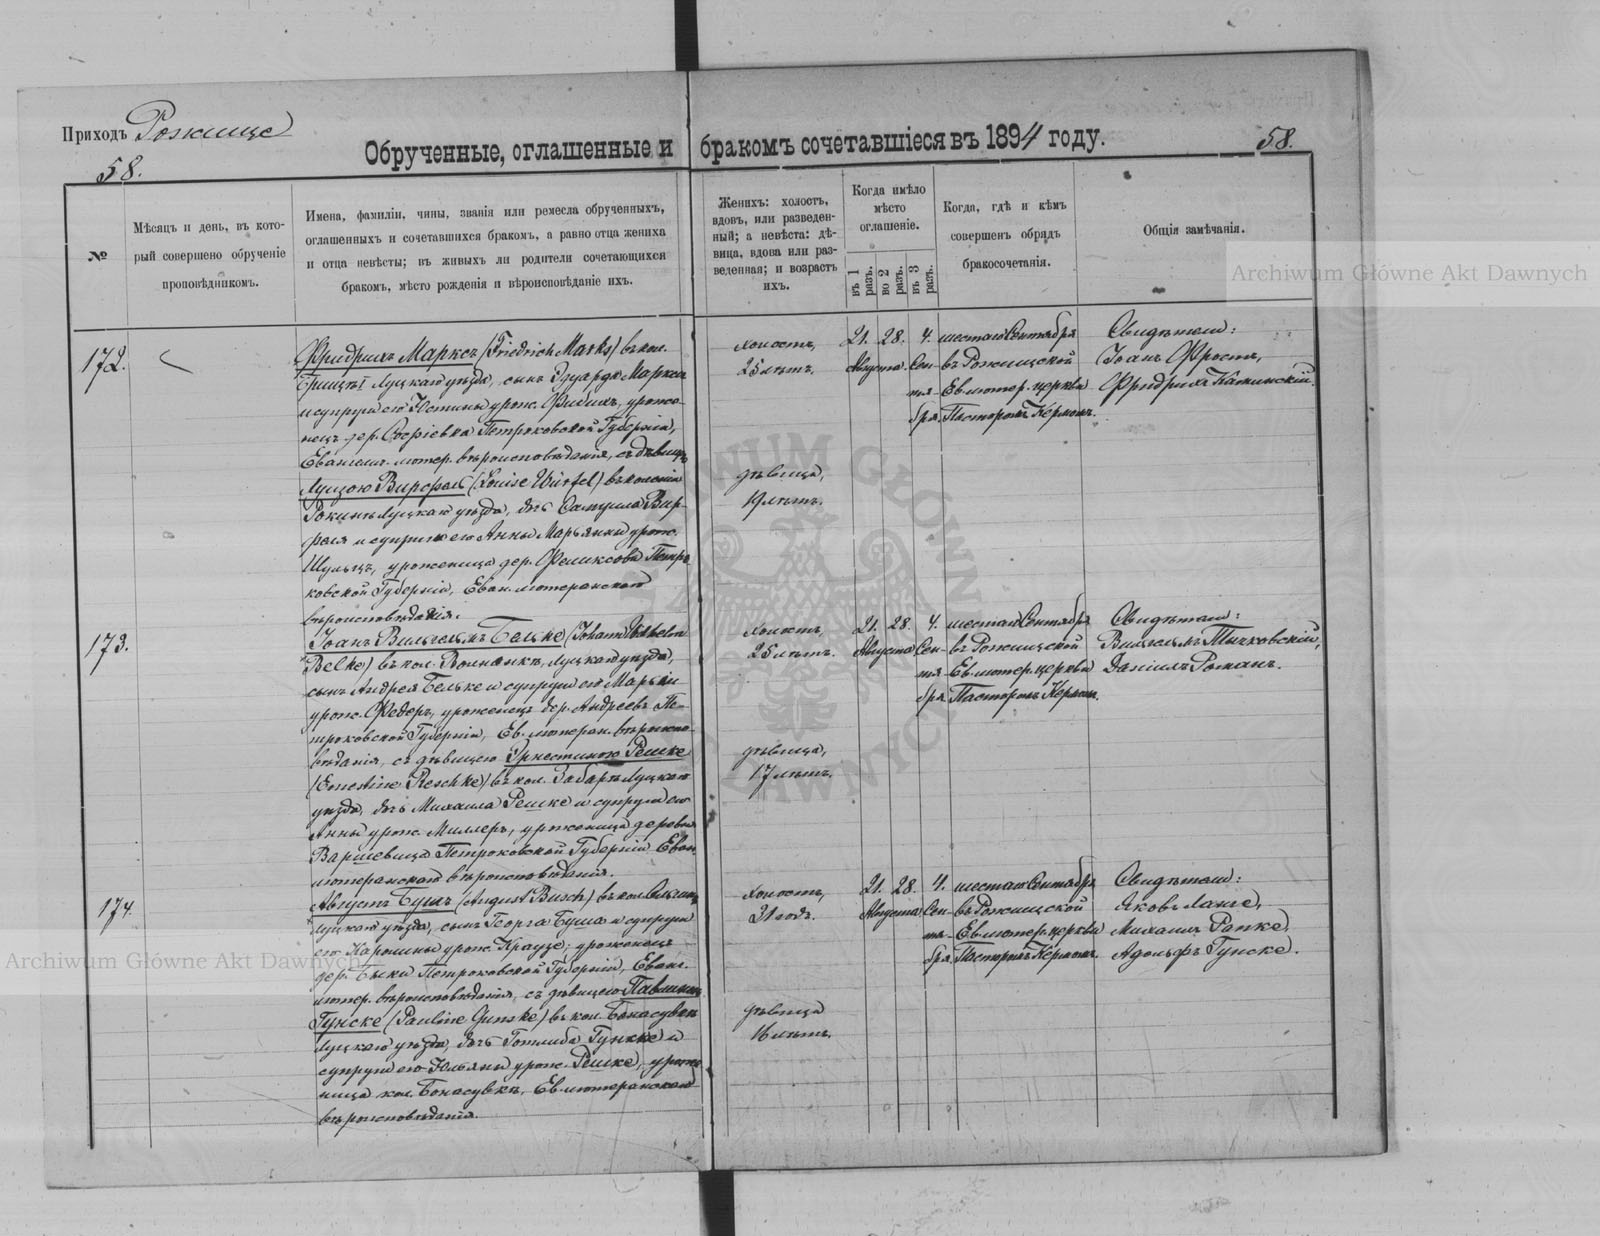 Приходъ Рожище
58.
Обрученные, оглашенные и бракомъ сочетавшіеся въ 1894 году.
58.
№
Мѣсяцъ и день, въ кото-
рый совершено обрученіе
проповѣдникомъ.
Имена, фамиліи, чины, званія или ремесла обрученныхъ,
оглашенныхъ и сочетавшихся бракомъ, а равно отца жениха
и отца невѣсты; въ живыхъ ли родители сочетающихся
бракомъ, мѣсто рожденія и вѣроисповѣданіе ихъ.
Женихъ: холостъ,
вдовъ, или разведен-
ный; а невѣста: дѣ-
вица, вдова или раз-
веденная; и возрастъ
ихъ.
Когда имѣло
мѣсто
оглашеніе.
въ 1 разъ.
во 2 разъ.
въ 3 разъ.
Когда, гдѣ и кѣмъ
совершенъ обрядъ
бракосочетанія.
Общія замѣчанія.
172.
Фридрихъ Марксъ (Friedrich Marks) въ кол.
Луцкаго уѣзда, сынъ Эдуарда Маркса
и супруги его Юстины урож. уроже-
нецъ дер. Софіевка Петроковской Губерніи,
Евангел. лютер. вѣроисповѣданія, съ дѣвицею
Луизою Вирфель (Louise Würfel) въ колоніи
Рокини Луцкаго уѣзда, дочь Самуила Вир-
феля и супруги его Анны Марьянны урож.
Шульцъ, уроженица дер. Феликсова Петро-
ковской Губерніи, Еван. лютеранскаго
вѣроисповѣданія.
холостъ,
25 лѣтъ.
дѣвица,
19 лѣтъ.
21. 28. 4.
Августа Сен-
тя-
бря.
шестаго Сентября
въ Рожищской
Ев. лютер. церкви
Пасторомъ Керномъ.
Свидѣтели:
Іоанъ Фростъ,
Фридрихъ Каминскій.
173.
Іоанъ Вильгельмъ Бельке (Johann Wilhelm
Belke) въ кол. Волнянкѣ, Луцкаго уѣзда,
сынъ Андрея Бельке и супруги его Марьи
урож. Федеръ, уроженецъ дер. Андреевъ Пе-
троковской Губерніи, Ев. лютеран. вѣроиспо-
вѣданія, съ дѣвицею Эрнестиною Решке
(Ernestine Reschke) въ кол. Забара Луцкаго
уѣзда, дочь Михаила Решке и супруги его
Анны урож. Миллеръ, уроженица деревни
Петроковской Губерніи Еван.
лютеранскаго вѣроисповѣданія.
холостъ,
25 лѣтъ.
дѣвица,
17 лѣтъ.
21. 28. 4.
Августа Сен-
тя-
бря
шестаго Сентября
въ Рожищской
Ев. лютер. церкви
Пасторомъ Керномъ.
Свидѣтели:
Вильгельмъ Тычковскій,
Даніилъ Романъ.
174.
Августъ Бушъ (August Busch) въ кол.
Луцкаго уѣзда, сынъ Георга Буша и супруги
его Каролины урож. Краузе, уроженецъ
дер. Петроковской Губерніи, Еванг.
лютер. вѣроисповѣданія, съ дѣвицею Павлиною
Гунске (Pauline Gunske) въ кол. Бонасувкѣ
Луцкаго уѣзда, дочь Готлиба Гунске и
супруги его Юльяны урож. Решке, уроже-
ница кол. Бонасувкѣ, Ев. лютеранскаго
вѣроисповѣданія.
холостъ,
21 годъ.
дѣвица
16 лѣтъ.
21. 28. 4.
Августа Сен-
тя-
бря.
шестаго Сентября
въ Рожищской
Ев. лютер. церкви
Пасторомъ Керномъ.
Свидѣтели:
Яковъ Ланге,
Михаилъ Рапке,
Адольфъ Гунске.
Archiwum Główne Akt Dawnych
Archiwum Główne Akt Dawnych